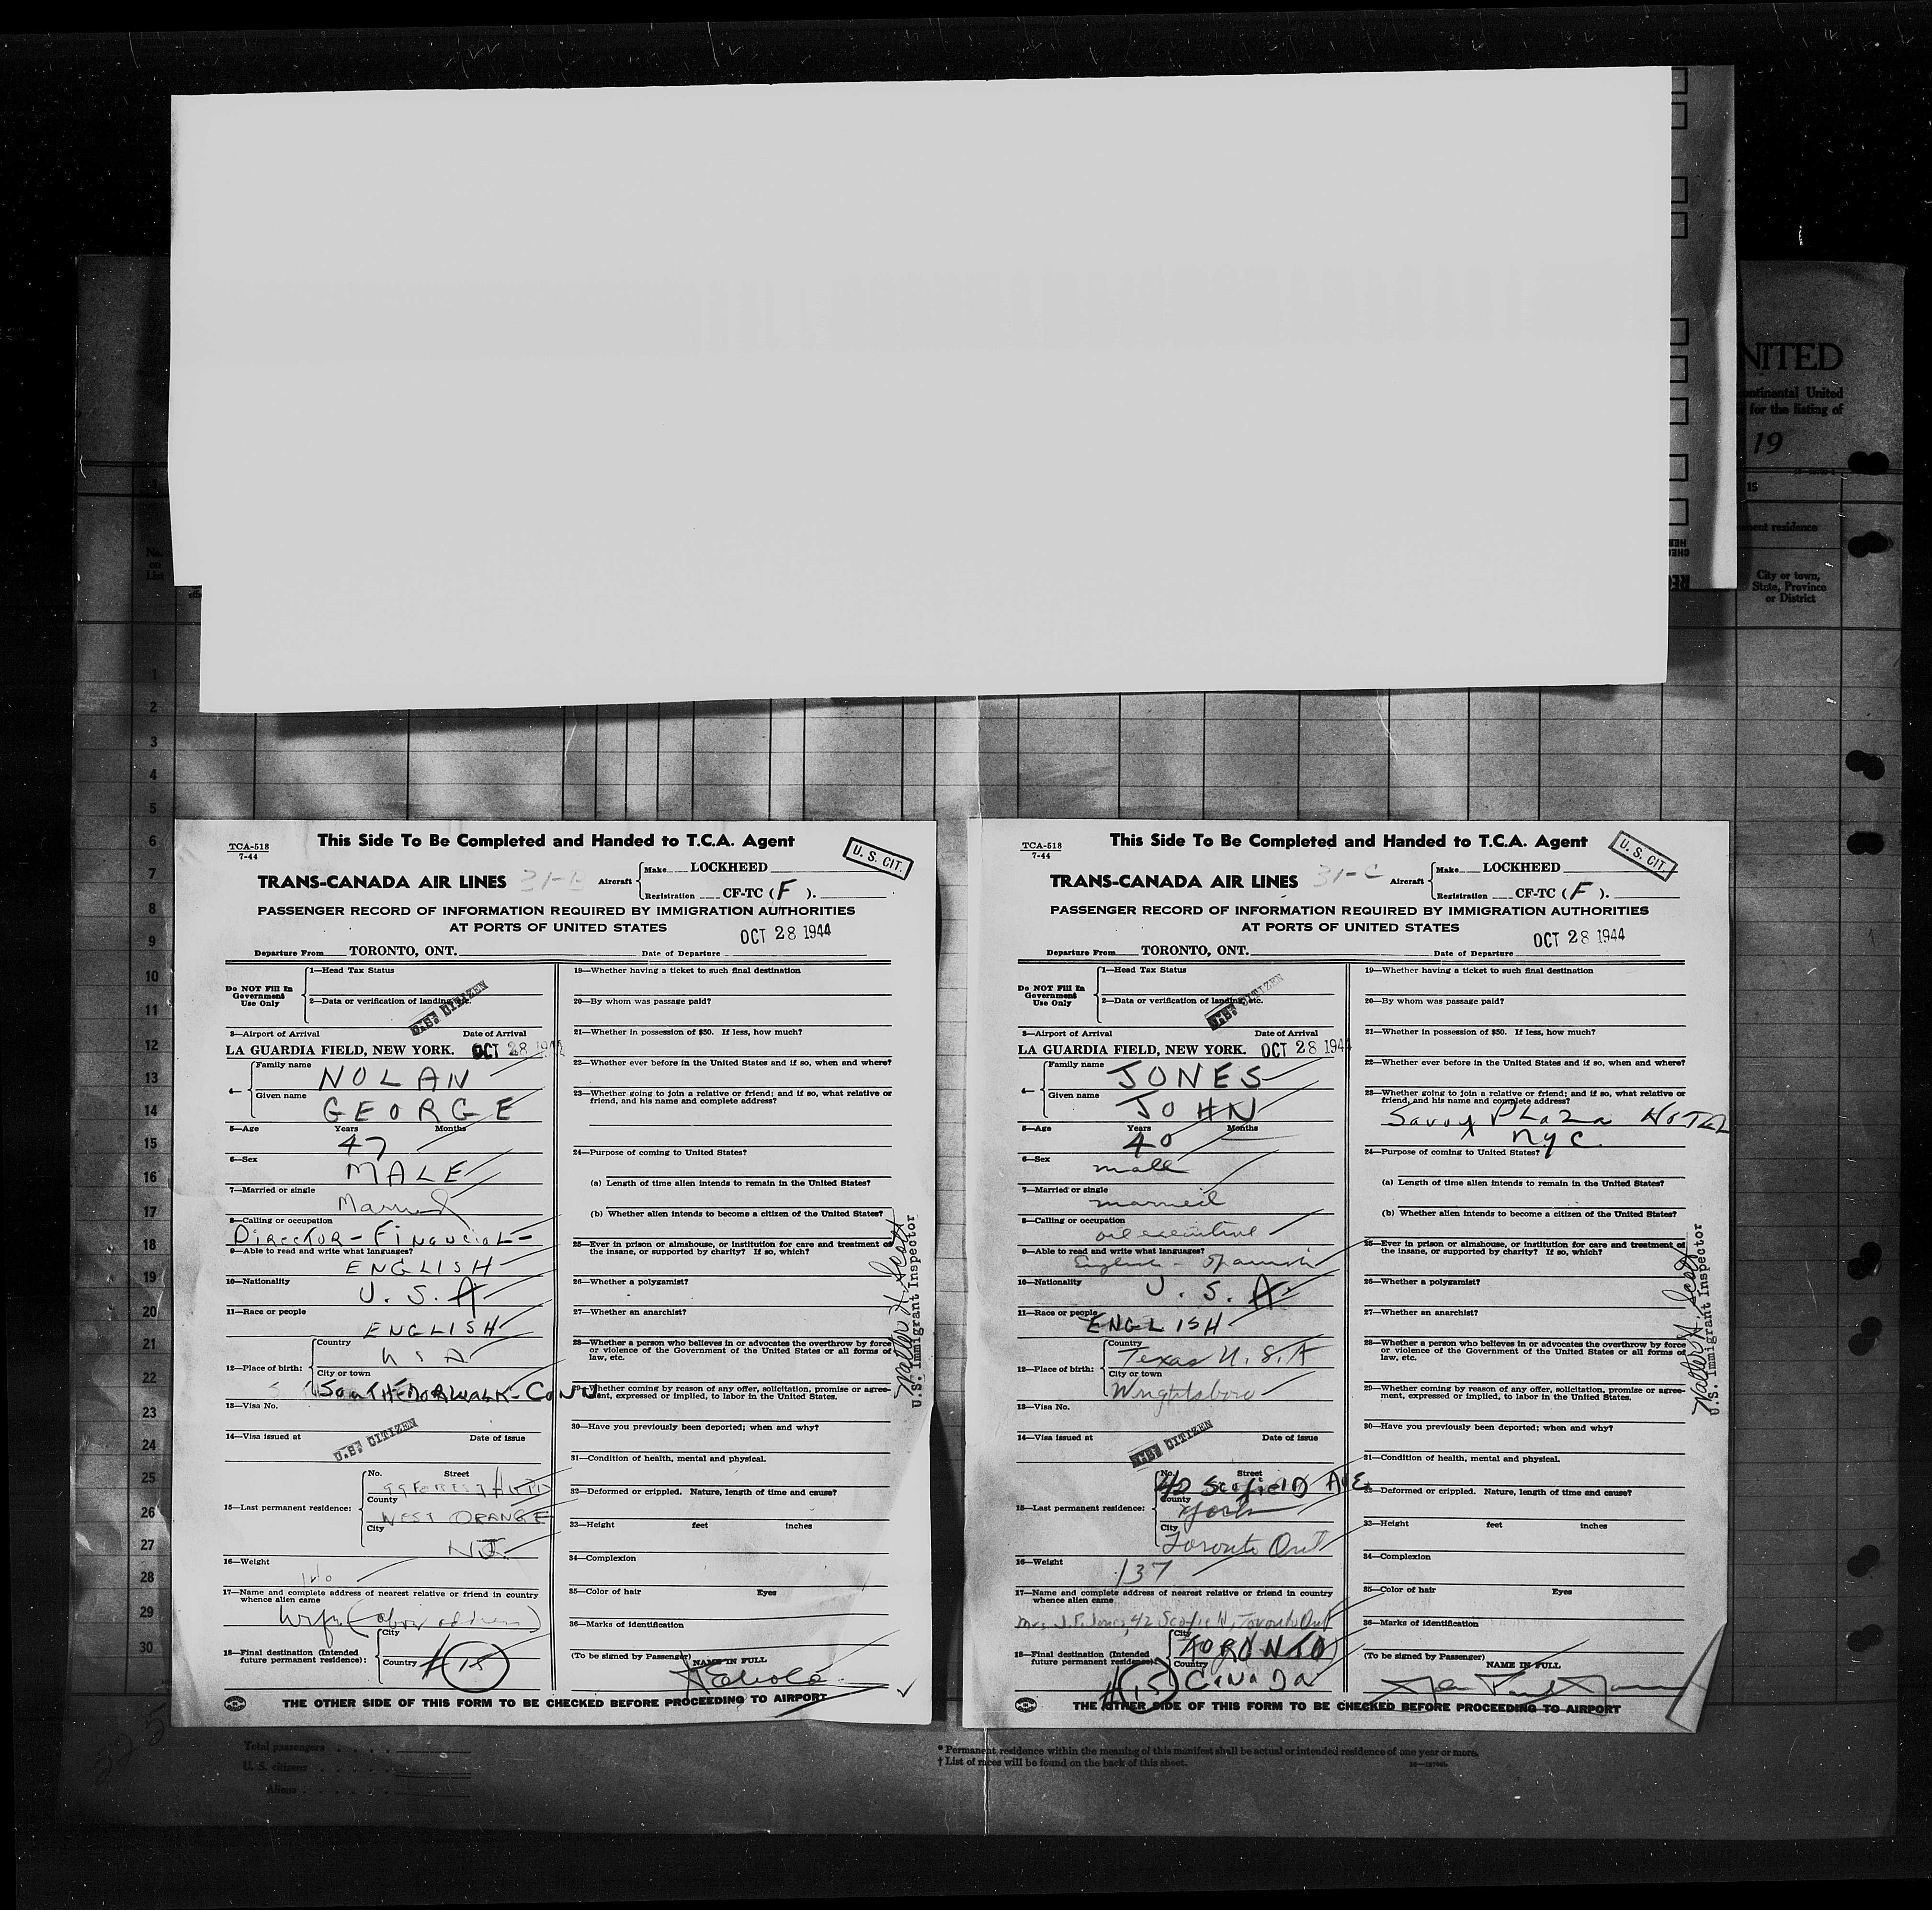 NITED
continental United
for the listing of
19
15
ment residence
No.
on
List
City or town,
State, Province
or District
1
2
3
4
5
6
7
8
9
10
11
12
13
14
15
16
17
18
19
20
21
22
23
24
25
26
27
28
29
30
This Side To Be Completed and Handed to T.C.A. Agent
TCA-518
7-44
U. S. CIT.
TRANS-CANADA AIR LINES
Aircraft
Make LOCKHEED
Registration CF-TC ( F ).
PASSENGER RECORD OF INFORMATION REQUIRED BY IMMIGRATION AUTHORITIES
AT PORTS OF UNITED STATES
OCT 28 1944
Departure From TORONTO, ONT. Date of Departure
Do NOT Fill In
Government
Use Only
1—Head Tax Status
2—Data or verification of landing, etc.
U.S. CITIZEN
3—Airport of Arrival Date of Arrival
LA GUARDIA FIELD, NEW YORK. OCT 28 1944
4—
Family name NOLAN
Given name GEORGE
5—Age Years Months
47
6—Sex
MALE
7—Married or single
Married
8—Calling or occupation
DIRECTOR - FINANCIAL -
9—Able to read and write what languages?
ENGLISH
10—Nationality
U. S. A.
11—Race or people
ENGLISH
12—Place of birth:
Country
U S A
City or town
SOUTH NORWALK - CONN
13—Visa No.
14—Visa issued at Date of issue
U.S. CITIZEN
15—Last permanent residence:
No. Street
99 FOREST HILL RD
County
WEST ORANGE
City
N J.
16—Weight
17—Name and complete address of nearest relative or friend in country
whence alien came
Wife (above address)
18—Final destination (Intended
future permanent residence):
City
Country
# 15
19—Whether having a ticket to such final destination
20—By whom was passage paid?
21—Whether in possession of $50. If less, how much?
22—Whether ever before in the United States and if so, when and where?
23—Whether going to join a relative or friend; and if so, what relative or
friend, and his name and complete address?
24—Purpose of coming to United States?
(a) Length of time alien intends to remain in the United States?
(b) Whether alien intends to become a citizen of the United States?
25—Ever in prison or almshouse, or institution for care and treatment of
the insane, or supported by charity? If so, which?
26—Whether a polygamist?
27—Whether an anarchist?
28—Whether a person who believes in or advocates the overthrow by force
or violence of the Government of the United States or all forms of
law, etc.
29—Whether coming by reason of any offer, solicitation, promise or agree-
ment, expressed or implied, to labor in the United States.
30—Have you previously been deported; when and why?
31—Condition of health, mental and physical.
32—Deformed or crippled. Nature, length of time and cause?
33—Height feet inches
34—Complexion
35—Color of hair Eyes
36—Marks of identification
(To be signed by Passenger)
NAME IN FULL
Walter H. Scott
U.S. Immigrant Inspector
THE OTHER SIDE OF THIS FORM TO BE CHECKED BEFORE PROCEEDING TO AIRPORT
This Side To Be Completed and Handed to T.C.A. Agent
TCA-518
7-44
U. S. CIT.
TRANS-CANADA AIR LINES 31-C
Aircraft
Make LOCKHEED
Registration CF-TC ( F ).
PASSENGER RECORD OF INFORMATION REQUIRED BY IMMIGRATION AUTHORITIES
AT PORTS OF UNITED STATES
OCT 28 1944
Departure From TORONTO, ONT. Date of Departure
Do NOT Fill In
Government
Use Only
1—Head Tax Status
2—Data or verification of landing, etc.
U.S. CITIZEN
3—Airport of Arrival Date of Arrival
LA GUARDIA FIELD, NEW YORK. OCT 28 1944
4—
Family name JONES
Given name JOHN
5—Age Years Months
40
6—Sex
male
7—Married or single
married
8—Calling or occupation
oil executive
9—Able to read and write what languages?
English - Spanish
10—Nationality
U. S. A.
11—Race or people
ENGLISH
12—Place of birth:
Country
Texas U. S. A
City or town
Wrightsboro
13—Visa No.
14—Visa issued at Date of issue
U.S. CITIZEN
15—Last permanent residence:
No. Street
42 Scofield AVE
County
York
City
Toronto Ont
16—Weight
137
17—Name and complete address of nearest relative or friend in country
whence alien came
Mrs J.P. Jones, 42 Scofield, Toronto Ont
18—Final destination (Intended
future permanent residence):
City
TORONTO
Country
CANADA
# 15
19—Whether having a ticket to such final destination
20—By whom was passage paid?
21—Whether in possession of $50. If less, how much?
22—Whether ever before in the United States and if so, when and where?
23—Whether going to join a relative or friend; and if so, what relative or
friend, and his name and complete address?
Savoy Plaza HOTEL
NYC.
24—Purpose of coming to United States?
(a) Length of time alien intends to remain in the United States?
(b) Whether alien intends to become a citizen of the United States?
25—Ever in prison or almshouse, or institution for care and treatment of
the insane, or supported by charity? If so, which?
26—Whether a polygamist?
27—Whether an anarchist?
28—Whether a person who believes in or advocates the overthrow by force
or violence of the Government of the United States or all forms of
law, etc.
29—Whether coming by reason of any offer, solicitation, promise or agree-
ment, expressed or implied, to labor in the United States.
30—Have you previously been deported; when and why?
31—Condition of health, mental and physical.
32—Deformed or crippled. Nature, length of time and cause?
33—Height feet inches
34—Complexion
35—Color of hair Eyes
36—Marks of identification
(To be signed by Passenger)
NAME IN FULL
John Paul Jones
Walter H. Scott
U.S. Immigrant Inspector
THE OTHER SIDE OF THIS FORM TO BE CHECKED BEFORE PROCEEDING TO AIRPORT
Total passengers
U. S. citizens
Aliens
* Permanent residence within the meaning of this manifest shall be actual or intended residence of one year or more.
† List of races will be found on the back of this sheet.